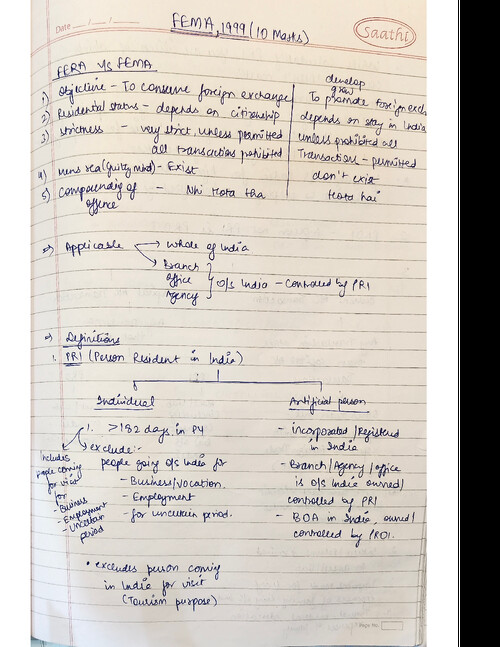 Date __/__/__
FEMA, 1999 (10 Marks)
Saathi
FERA Vs FEMA
1) Objective - To conserve foreign exchange
develop
grow
To promote foreign exch
2) Residential status - depends on citizenship
depends on stay in India
3) strictness - very strict, unless permitted
all transactions prohibited
unless prohibited all
Transaction - permitted
4) mens rea (guilty mind) - Exist
don't exist
5) Compounding of
offence
- Nhi Hota tha
Hota hai
⇒ Applicable → whole of India
→ Branch
office
Agency
o/s India - Controlled by PRI
⇒ Definitions
1. PRI (Person Resident in India)
Individual
1. >182 days in PY
→ exclude:-
people going o/s India for
- Business/vocation.
- Employment
- for uncertain period.
• excludes person coming
in India for visit
(Tourism purpose)
Includes
people coming
for visit
for
- Business
- Employment
- Uncertain
period
Artificial person
- incorporated/Registered
in India
- Branch/Agency/office
is o/s India owned/
controlled by PRI
- BOA in India, owned/
controlled by PROI.
Page No.